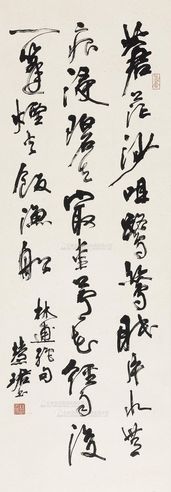 蒼茫沙咀鷺鷥眠片水無
痕浸碧天最愛芦花經雨後
一篷煙火飯漁船
林逋絕句
慧珺